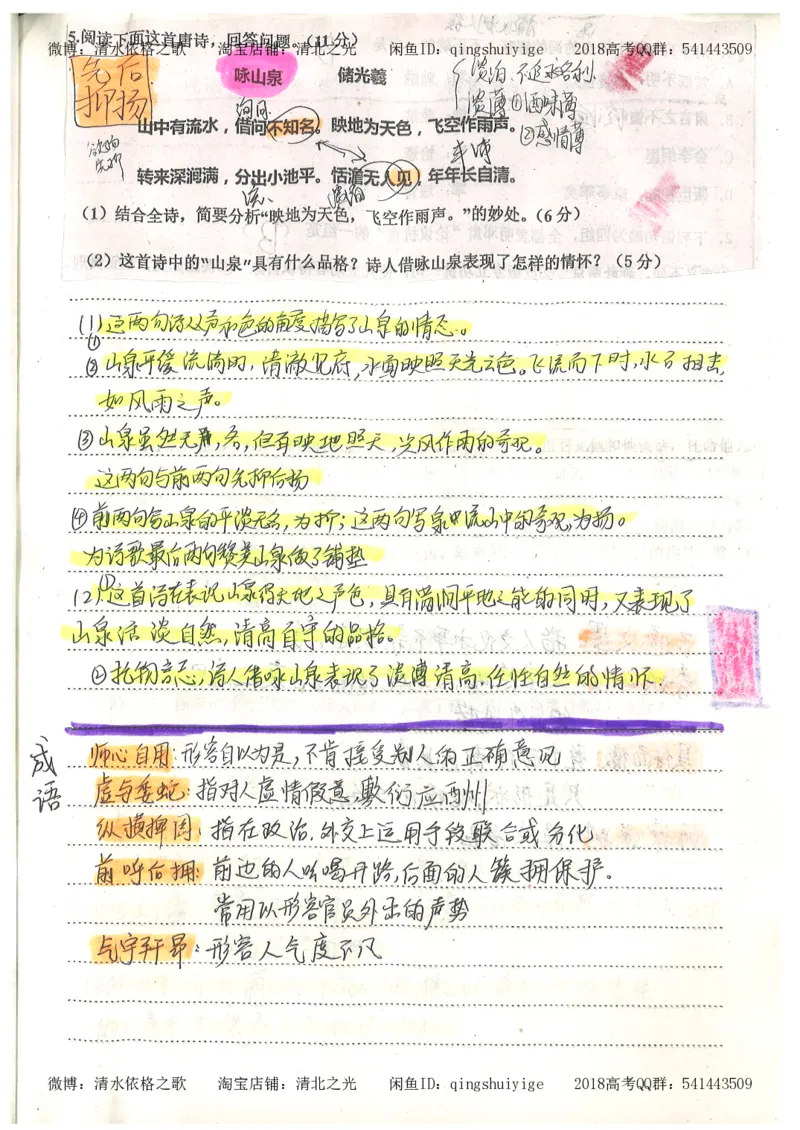 5.阅读下面这首唐诗，回答问题。（11分）
微博：清水依格之歌 淘宝店铺：清北之光 闲鱼ID：qingshuiyige 2018高考QQ群：541443509
咏山泉 储光羲
淡泊、不追求名利
淡薄①酒味薄
②感情薄
询问
山中有流水，借问不知名。映地为天色，飞空作雨声。
转来深涧满，分出小池平。恬澹无人见，年年长自清。
（1）结合全诗，简要分析“映地为天色，飞空作雨声。”的妙处。（6分）
（2）这首诗中的“山泉”具有什么品格？诗人借咏山泉表现了怎样的情怀？（5分）
(1)①这两句诗从声和色的角度描写了山泉的情态。
②山泉平缓流淌时，清澈见底，水面映照天光云色。飞流而下时，水石相击，
如风雨之声。
③山泉虽然无声，名，但有映地照天，兴风作雨的奇观。
这两句与前两句先抑后扬
④前两句写山泉的平淡无名，为抑；这两句写泉中流山中的奇观，为扬。
为诗歌最后两句赞美山泉做了铺垫
(2)①这首诗在表现山泉得天地之声色，具有满涧平池之能的同时，又表现了
山泉活淡自然，清高自守的品格。
②托物言志，诗人借咏山泉表现了淡薄清高、任性自然的情怀。
成语
师心自用：形容自以为是，不肯接受别人的正确意见
虚与委蛇：指对人虚情假意，敷衍应酬
纵横捭阖：指在政治、外交上运用手段联合或分化
前呼后拥：前边的人吆喝开路，后面的人簇拥保护。
常用以形容官员外出的声势
气宇轩昂：形容人气度不凡
微博：清水依格之歌 淘宝店铺：清北之光 闲鱼ID：qingshuiyige 2018高考QQ群：541443509